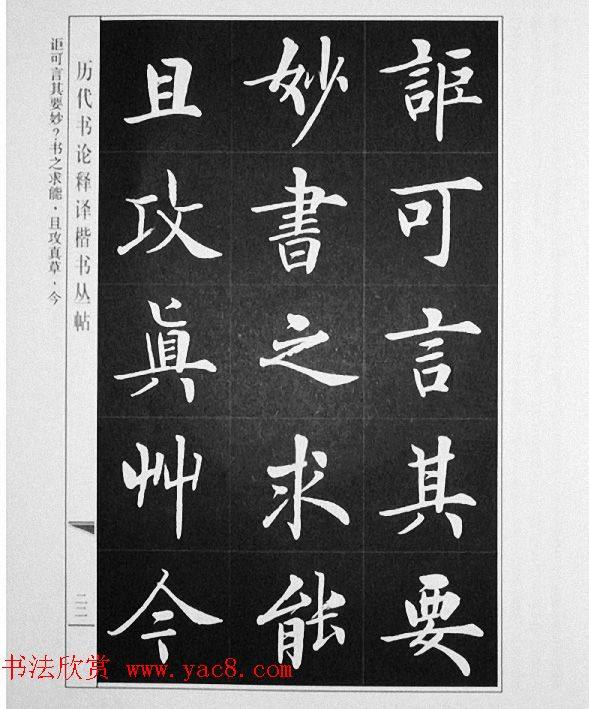 詎可言其要
妙書之求能
且攻眞艸今
历代书论释译楷书丛帖
二二
讵可言其要妙？书之求能，且攻真草，今
书法欣赏 www.yac8.com